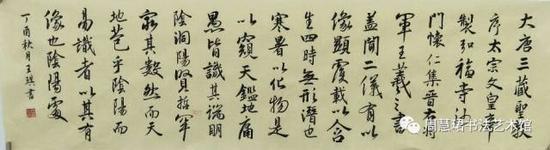 大唐三藏聖教
序太宗文皇帝
製弘福寺沙
門懷仁集晉右將
軍王羲之書
蓋聞二儀有以
像顯覆載以含
生四時無形潛也
寒暑以化物是
以窺天鑑地庸
愚皆識其端明
陰洞陽賢哲罕
窮其數然而天
地苞乎陰陽而
易識者以其有
像也陰陽處
丁酉秋月王琪書
周慧珺书法艺术馆